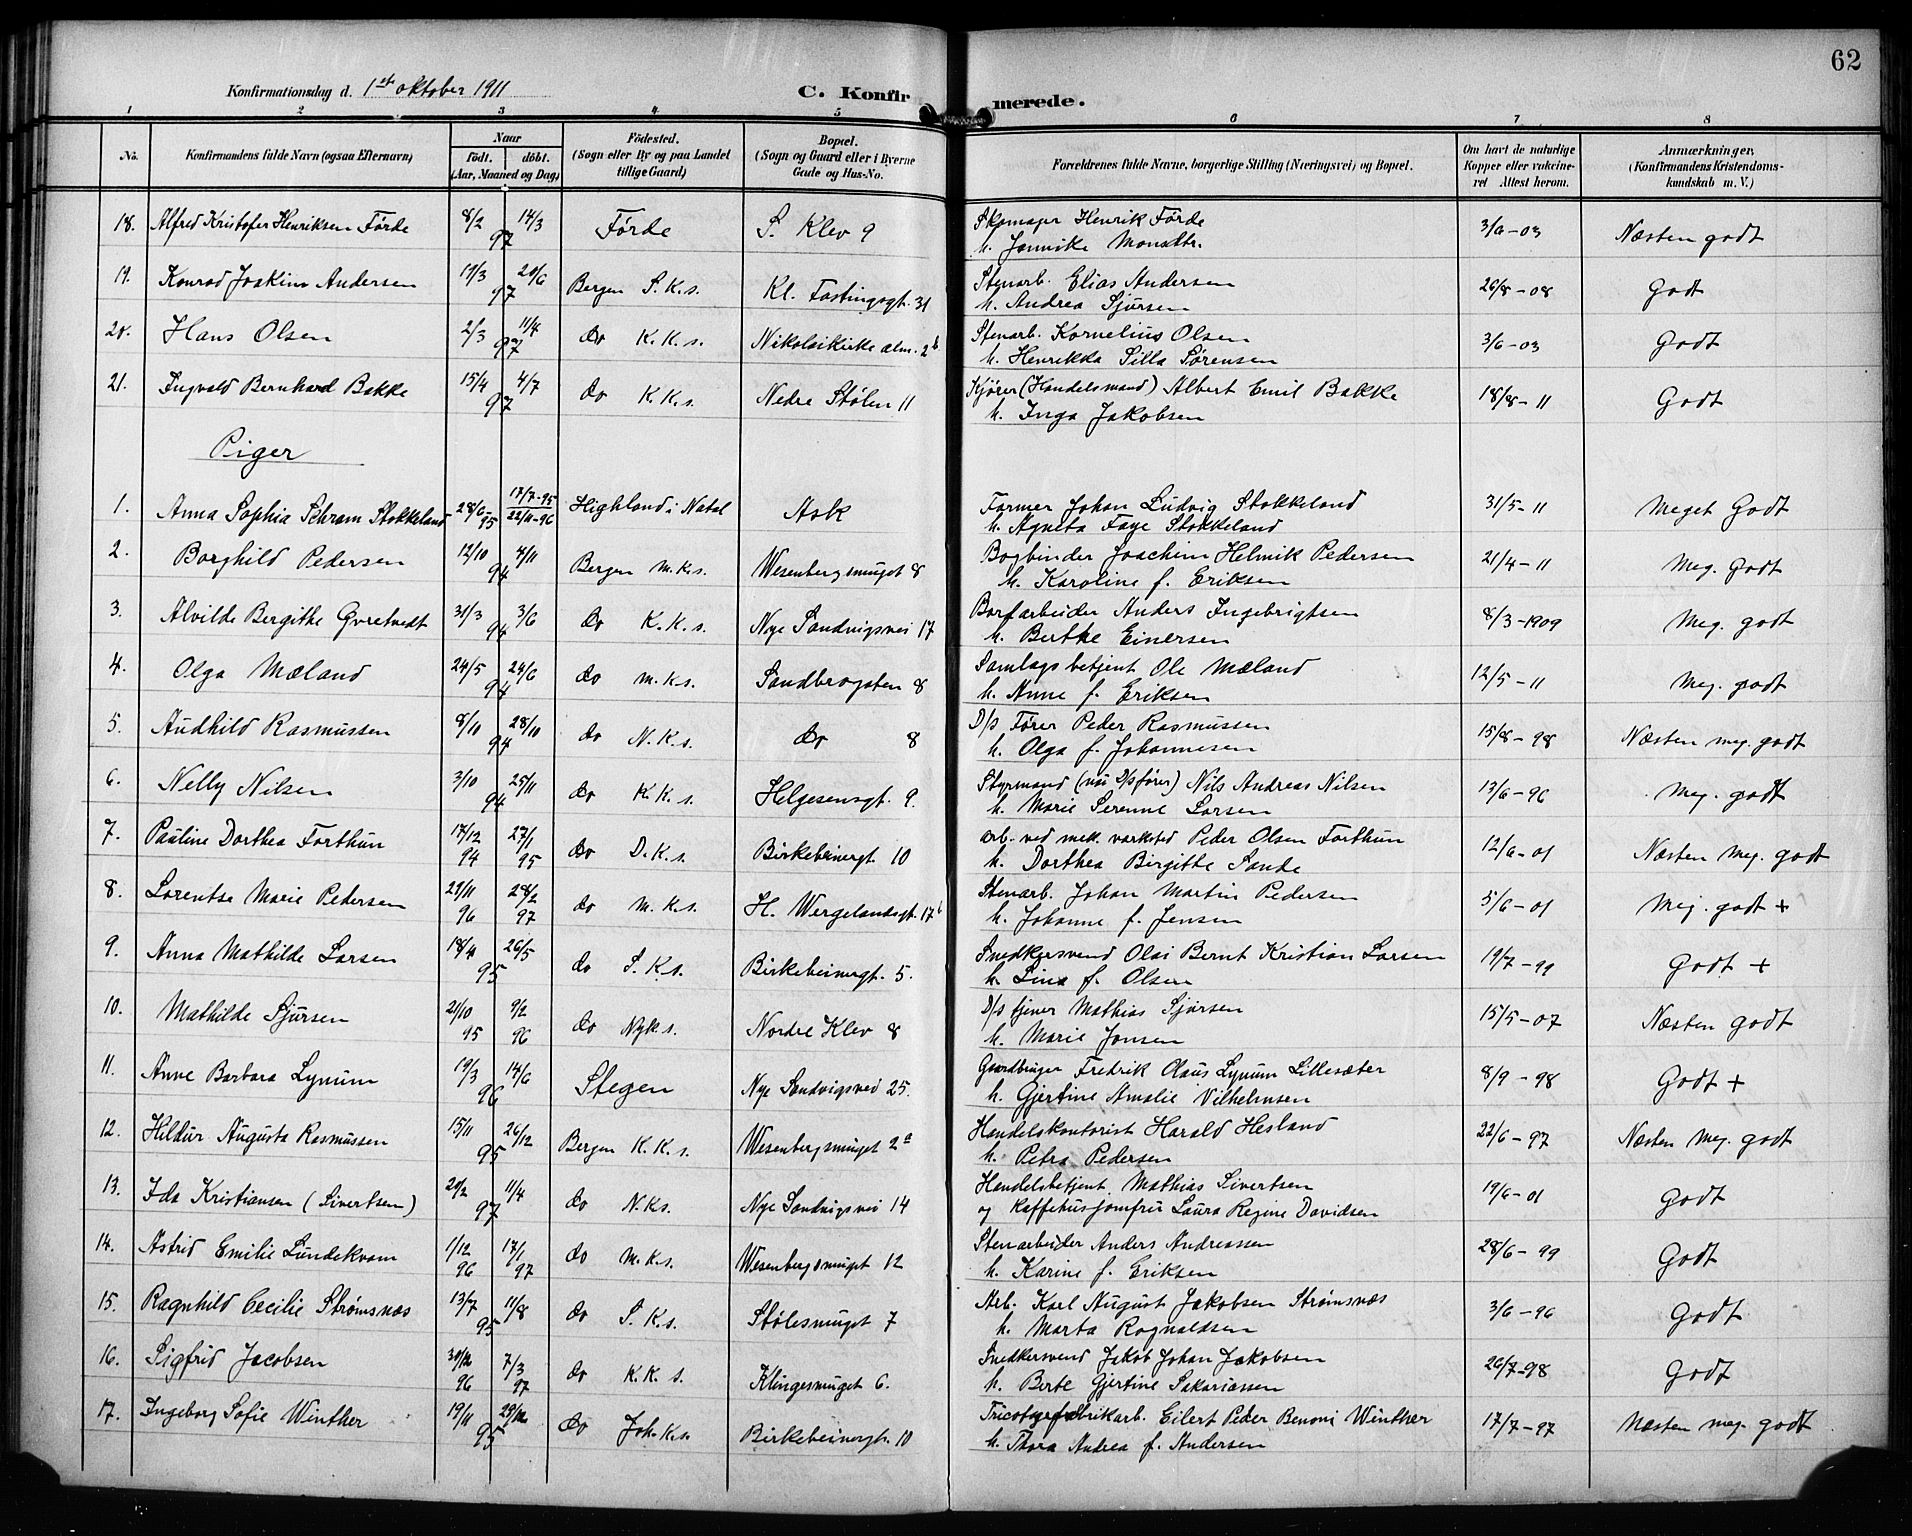 62
Konfirmationsdag d. 1ste oktober 1911 C. Konfirmerede.
1 2 3 4 5 6 7 8
No. Konfirmandens fulde Navn (ogsaa Efternavn) Naar födt. döbt. (Aar, Maaned og Dag) Födested. (Sogn eller By og paa Landet tillige Gaard) Bopæl. (Sogn og Gaard eller i Byerne Gade og Hus-No. Forældrenes fulde Navne, borgerlige Stilling (Næringsvei) og Bopæl. Om havt de naturlige Kopper eller vakcineret Attest herom. Anmærkninger, (Konfirmandens Kristendomskundskab m. V.)
18. Alfred Kristofer Henriksen Förde 8/2 14/3 97 Förde S. Klev 9 Skomager Henrik Förde 3/6-03 Næsten godt
h. Jannike Monsdtr.
19. Konrad Joakim Andersen 19/3 20/6 97 Bergen S.K.s. Kl. Fastingsgt. 31 Stenarb. Elias Andersen 26/8-08 Godt
h. Andrea Sjursen
20. Hans Olsen 2/3 11/4 97 do K.K.s. Nikolaikirke alm. 2b Stenarb. Kornelius Olsen 3/6-03 Godt
h. Henrikka Silla Sørensen
21. Ingvald Bernhard Bakke 15/4 4/7 97 do K.K.s. Nedre Stölen 11 Kjører (Handelsmand) Albert Emil Bakke 18/8-11 Godt
h. Inga Jakobsen
Piger
1. Anna Sophia Schram Stokkeland 28/6-95 17/7-95 22/11-96 Highland i Natal Ask Farmer Johan Ludvig Stokkeland 31/5-11 Meget Godt
h. Agneta Faye Stokkeland
2. Borghild Pedersen 12/10 4/11 94 Bergen M.K.s. Wesenbergsmuget 8 Bogbinder Joachim Helmik Pedersen 21/4-11 Meg. Godt
h. Karoline f. Eriksen
3. Alvilde Bergithe Gvretvedt 31/3 3/6 94 do K.K.s. Nye Sandvigsvei 17 Barfarbeider Anders Ingebrigtsen 8/3-1909 Meg. godt
h. Berthe Einersen
4. Olga Mæland 24/5 24/6 94 do M.K.s. Sandbrogaten 8 Samlagsbetjent Ole Mæland 12/5-11 Meg. godt
h. Anne f. Eriksen
5. Audhild Rasmussen 8/11 28/10 94 do N.K.s. do 8 D/s Fører Peder Rasmussen 15/8-98 Næsten meg. godt
h. Olga f. Johannesen
6. Nelly Nilsen 3/10 25/11 94 do K.K.s. Helgesensgt. 9. Styrmand (nu D/s fører) Nils Andreas Nilsen 13/6-96 Meg. godt
h. Marie Serenne Larsen
7. Pauline Dorthea Forthun 17/12 94 27/1 95 do D.K.s. Birkebeinergt. 10 arb. ved mek. værksted Peder Olsen Forthun 12/6-01 Næsten Meg. godt
h. Dorthea Birgithe Sande
8. Lorentse Marie Pedersen 29/11 96 28/2 97 do M.K.s. H. Wergelandsgt. 17b Stenarb. Johan Martin Pedersen 5/6-01 Meg. godt +
h. Johanne f. Jensen
9. Anna Mathilde Larsen 18/4 26/5 95 do S.K.s. Birkebeinergt. 5. Snedkersvend Olai Bernt Kristian Larsen 19/7-99 Godt +
h. Lina f. Olsen
10. Mathilde Sjursen 21/10 95 9/2 96 do Nyk s. Nordre Klev 8 D/s tjener Mathias Sjursen 15/5-07 Næsten godt
h. Marie Jonsen
11. Anne Barbara Lynum 19/3 14/6 96 Stegen Nye Sandvigsvei 25. Gaardbruger Fredrik Olaus Lynum Lillesæter 8/9-98 Godt +
h. Gjertine Amalie Vilhelmsen
12. Hildur Augusta Rasmussen 15/11 26/12 95 Bergen K.K.s. Wesenbergsmuget 2a Handelskontorist Harald Hesland 22/6-97 Næsten Meg. godt
h. Petra Pedersen
13. Ida Kristiansen (Sivertsen) 20/2 11/4 97 do N.Ks. Nye Sandvigsvei 14 Handelsbetjent Mathias Sivertsen 19/6-01 Godt
og Kaffehusjomfru Laura Regine Davidsen
14. Astrid Emilie Lundekvam 1/12 96 17/1 97 do M.K.s. Wesenbergsmuget 12 Stenarbeider Anders Andreassen 28/6-99 Godt
h. Karine f. Eriksen
15. Ragnhild Cecilie Strømsnæs 13/7 11/8 95 do S.K.s. Stölesmuget 7 Arb. Karl August Jakobsen Strømsnæs 3/6-96 Godt
h. Marta Ragnaldsen
16. Sigfrid Jacobsen 30/12 96 7/3 97 do K.K.s. Klingesmuget 6. Snedkersvend Jakob Johan Jakobsen 26/7-98 Godt
h. Berte Gjertine Sakariassen
17. Ingeborg Sofie Winther 19/11 29/12 95 do Joh.K.s. Birkebeinergt. 10 Tricotagefabrikarb. Eilert Peder Benoni Winther 17/7-97 Næsten meg. godt
h. Thora Andrea f. Andersen